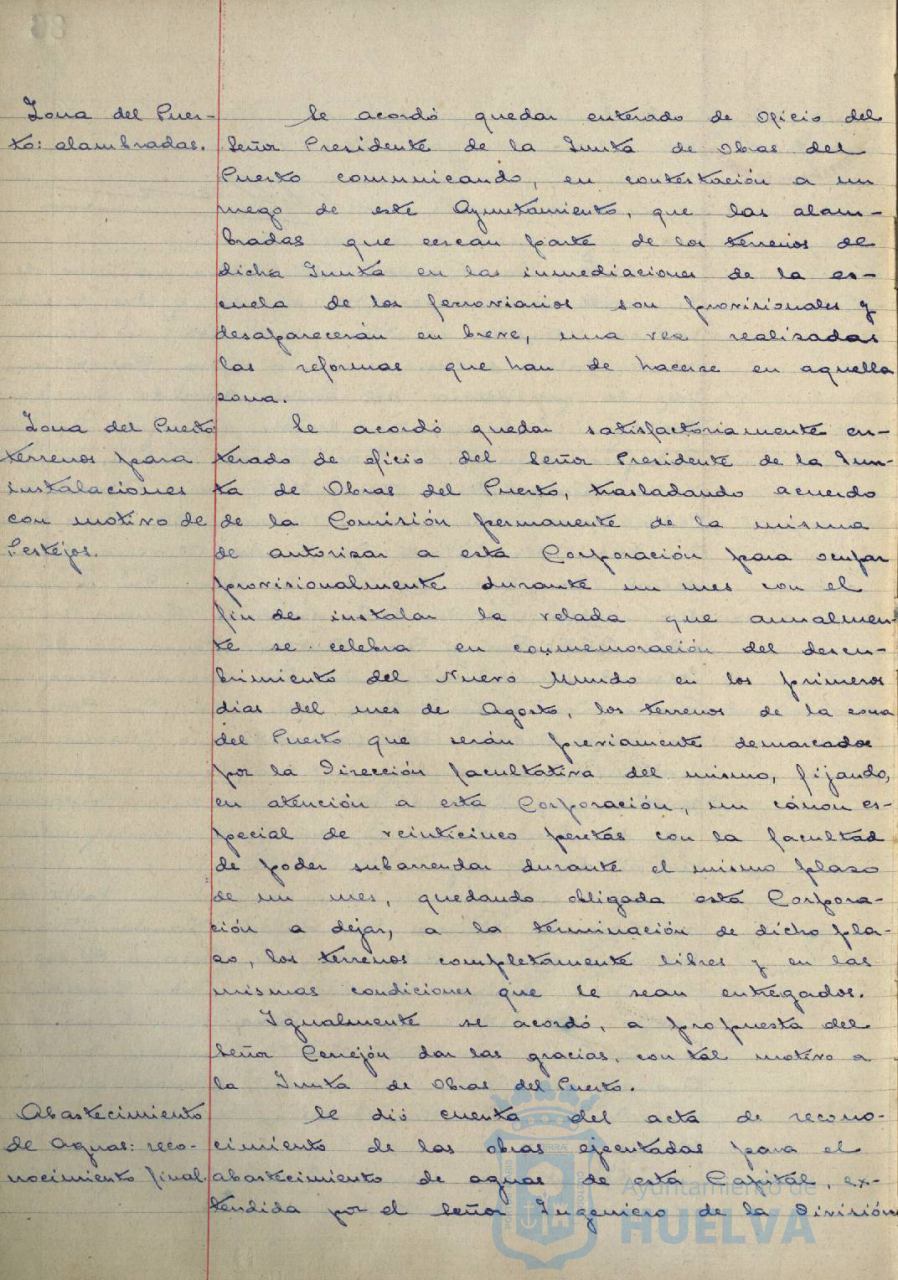 Zona del Puer-
to: alambradas.
Se acordó quedar enterado de oficio del
Señor Presidente de la Junta de Obras del
Puerto comunicando, en contestación a un
ruego de este Ayuntamiento, que las alam-
bradas que cercan parte de los terrenos de
dicha Junta en las inmediaciones de la es-
cuela de los ferroviarios son provisionales y
desaparecerán en breve, una vez realizadas
las reformas que han de hacerse en aquella
zona.
Zona del Puerto
terrenos para
instalaciones
con motivo de
Festejos.
Se acordó quedar satisfactoriamente en-
terado de oficio del Señor Presidente de la Jun-
ta de Obras del Puerto, trasladando acuerdo
de la Comisión permanente de la misma
de autorizar a esta Corporación para ocupar
provisionalmente durante un mes con el
fin de instalar la velada que anualmen-
te se celebra en conmemoración del descu-
brimiento del Nuevo Mundo en los primeros
dias del mes de Agosto, los terrenos de la zona
del Puerto que serán previamente demarcados
por la Dirección facultativa del mismo, fijando,
en atención a esta Corporación, un cánon es-
pecial de veinticinco pesetas con la facultad
de poder subarrendar durante el mismo plazo
de un mes, quedando obligada esta Corpora-
ción a dejar, a la terminación de dicho pla-
zo, los terrenos completamente libres y en las
mismas condiciones que le sean entregados.
Igualmente se acordó, a propuesta del
Señor Cerrejón dar las gracias, con tal motivo a
la Junta de Obras del Puerto.
Abastecimiento
de Aguas: reco-
nocimiento final.
Se dió cuenta del acta de recono-
cimiento de las obras ejecutadas para el
abastecimiento de aguas de esta Capital, ex-
tendida por el Señor Ingeniero de la División
Ayuntamiento de
HUELVA